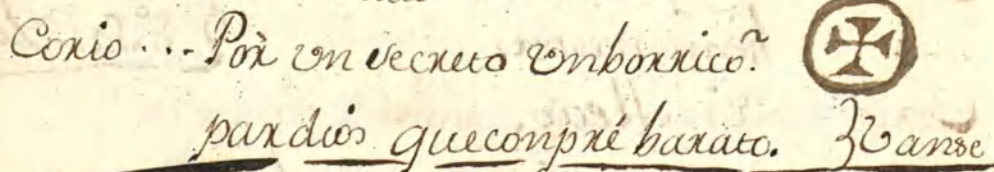 Corio... Por un secreto un borrico.
pardios que conpré barato. Vanse